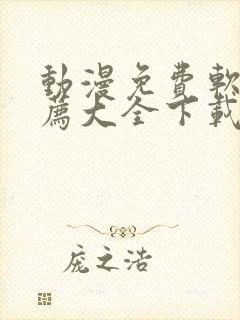 動漫免費軟
薦大全下載
庞之浩